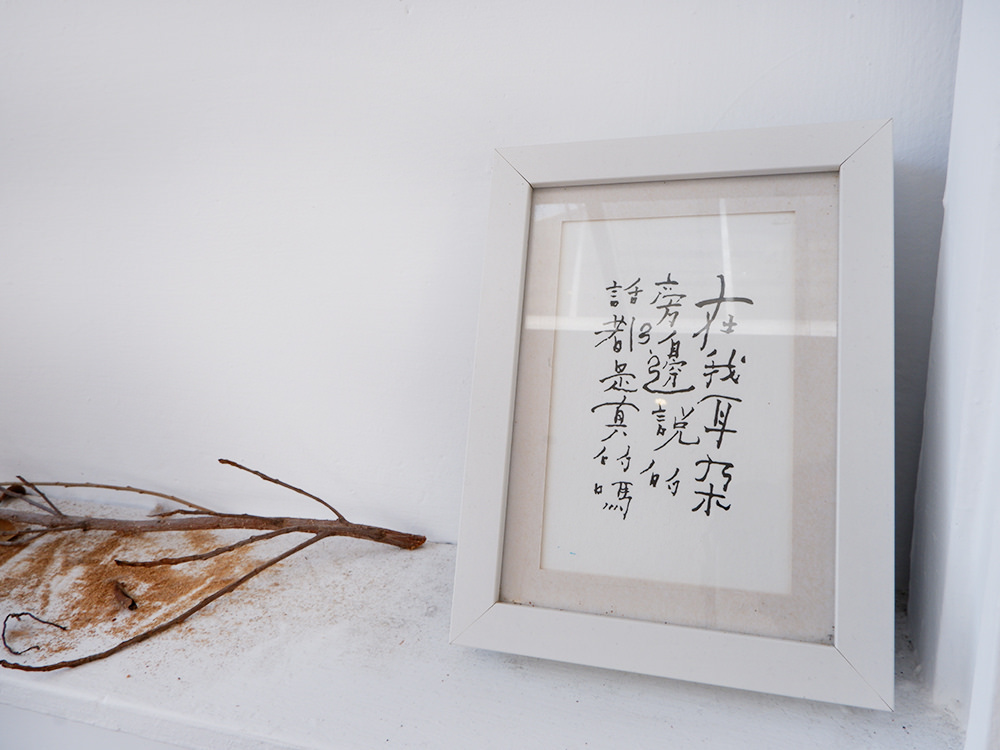 在我耳朵
旁邊說的
話都是真的嗎